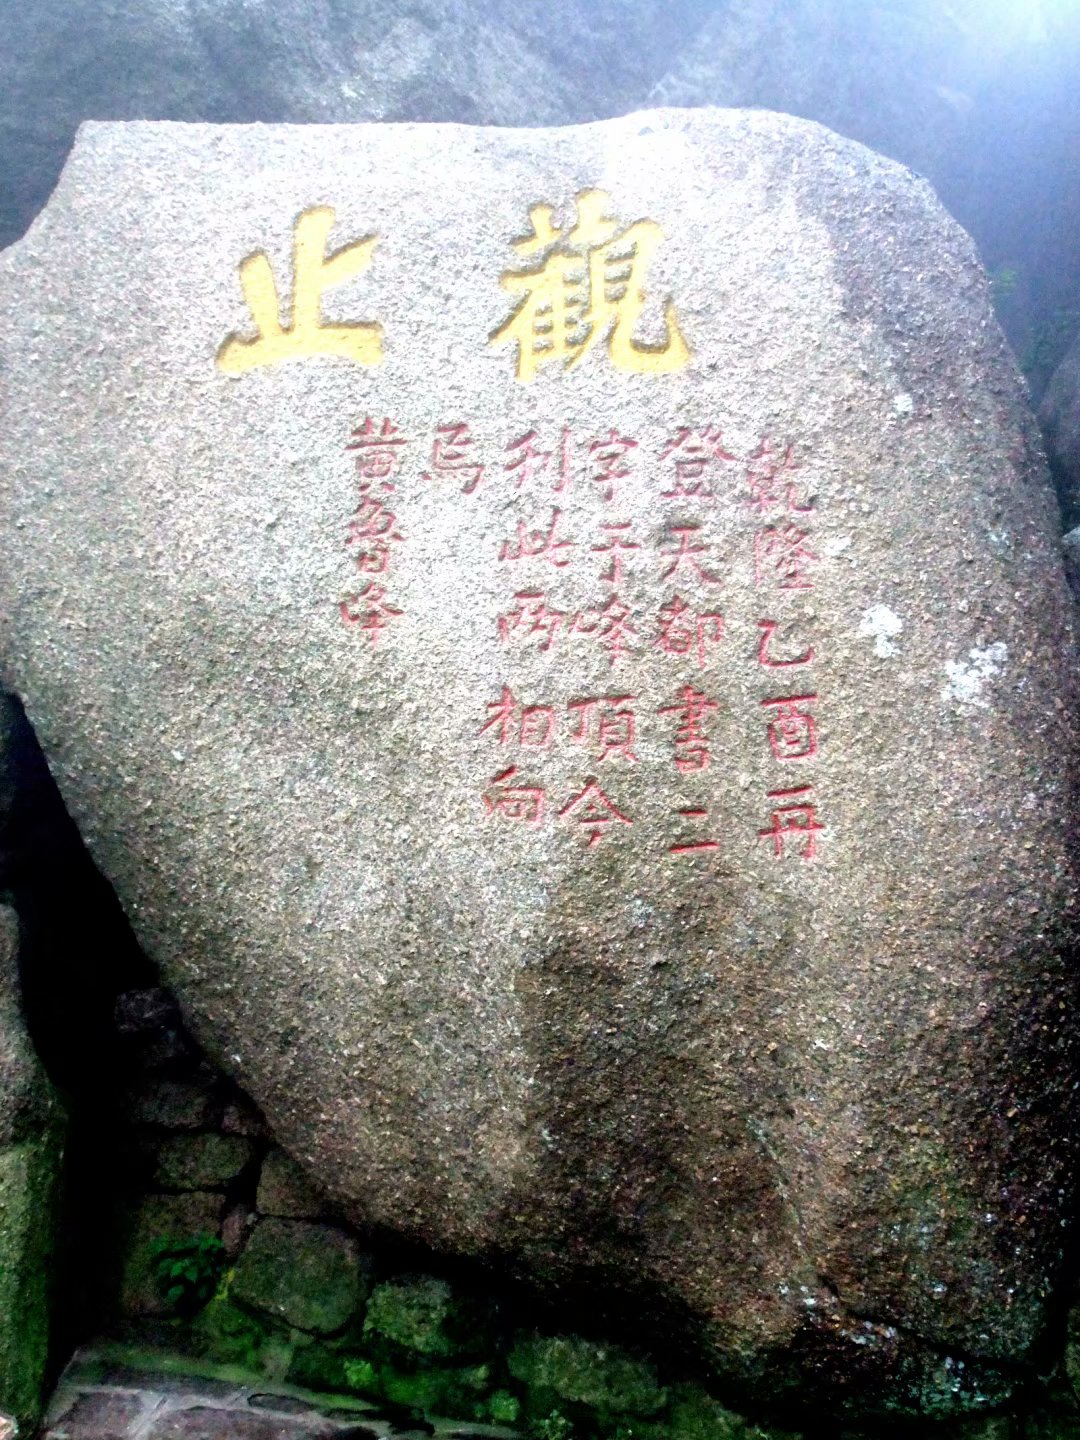 觀止
乾隆乙酉再
登天都書二
字于峰頂今
刊此兩相向
焉
黃魯峰